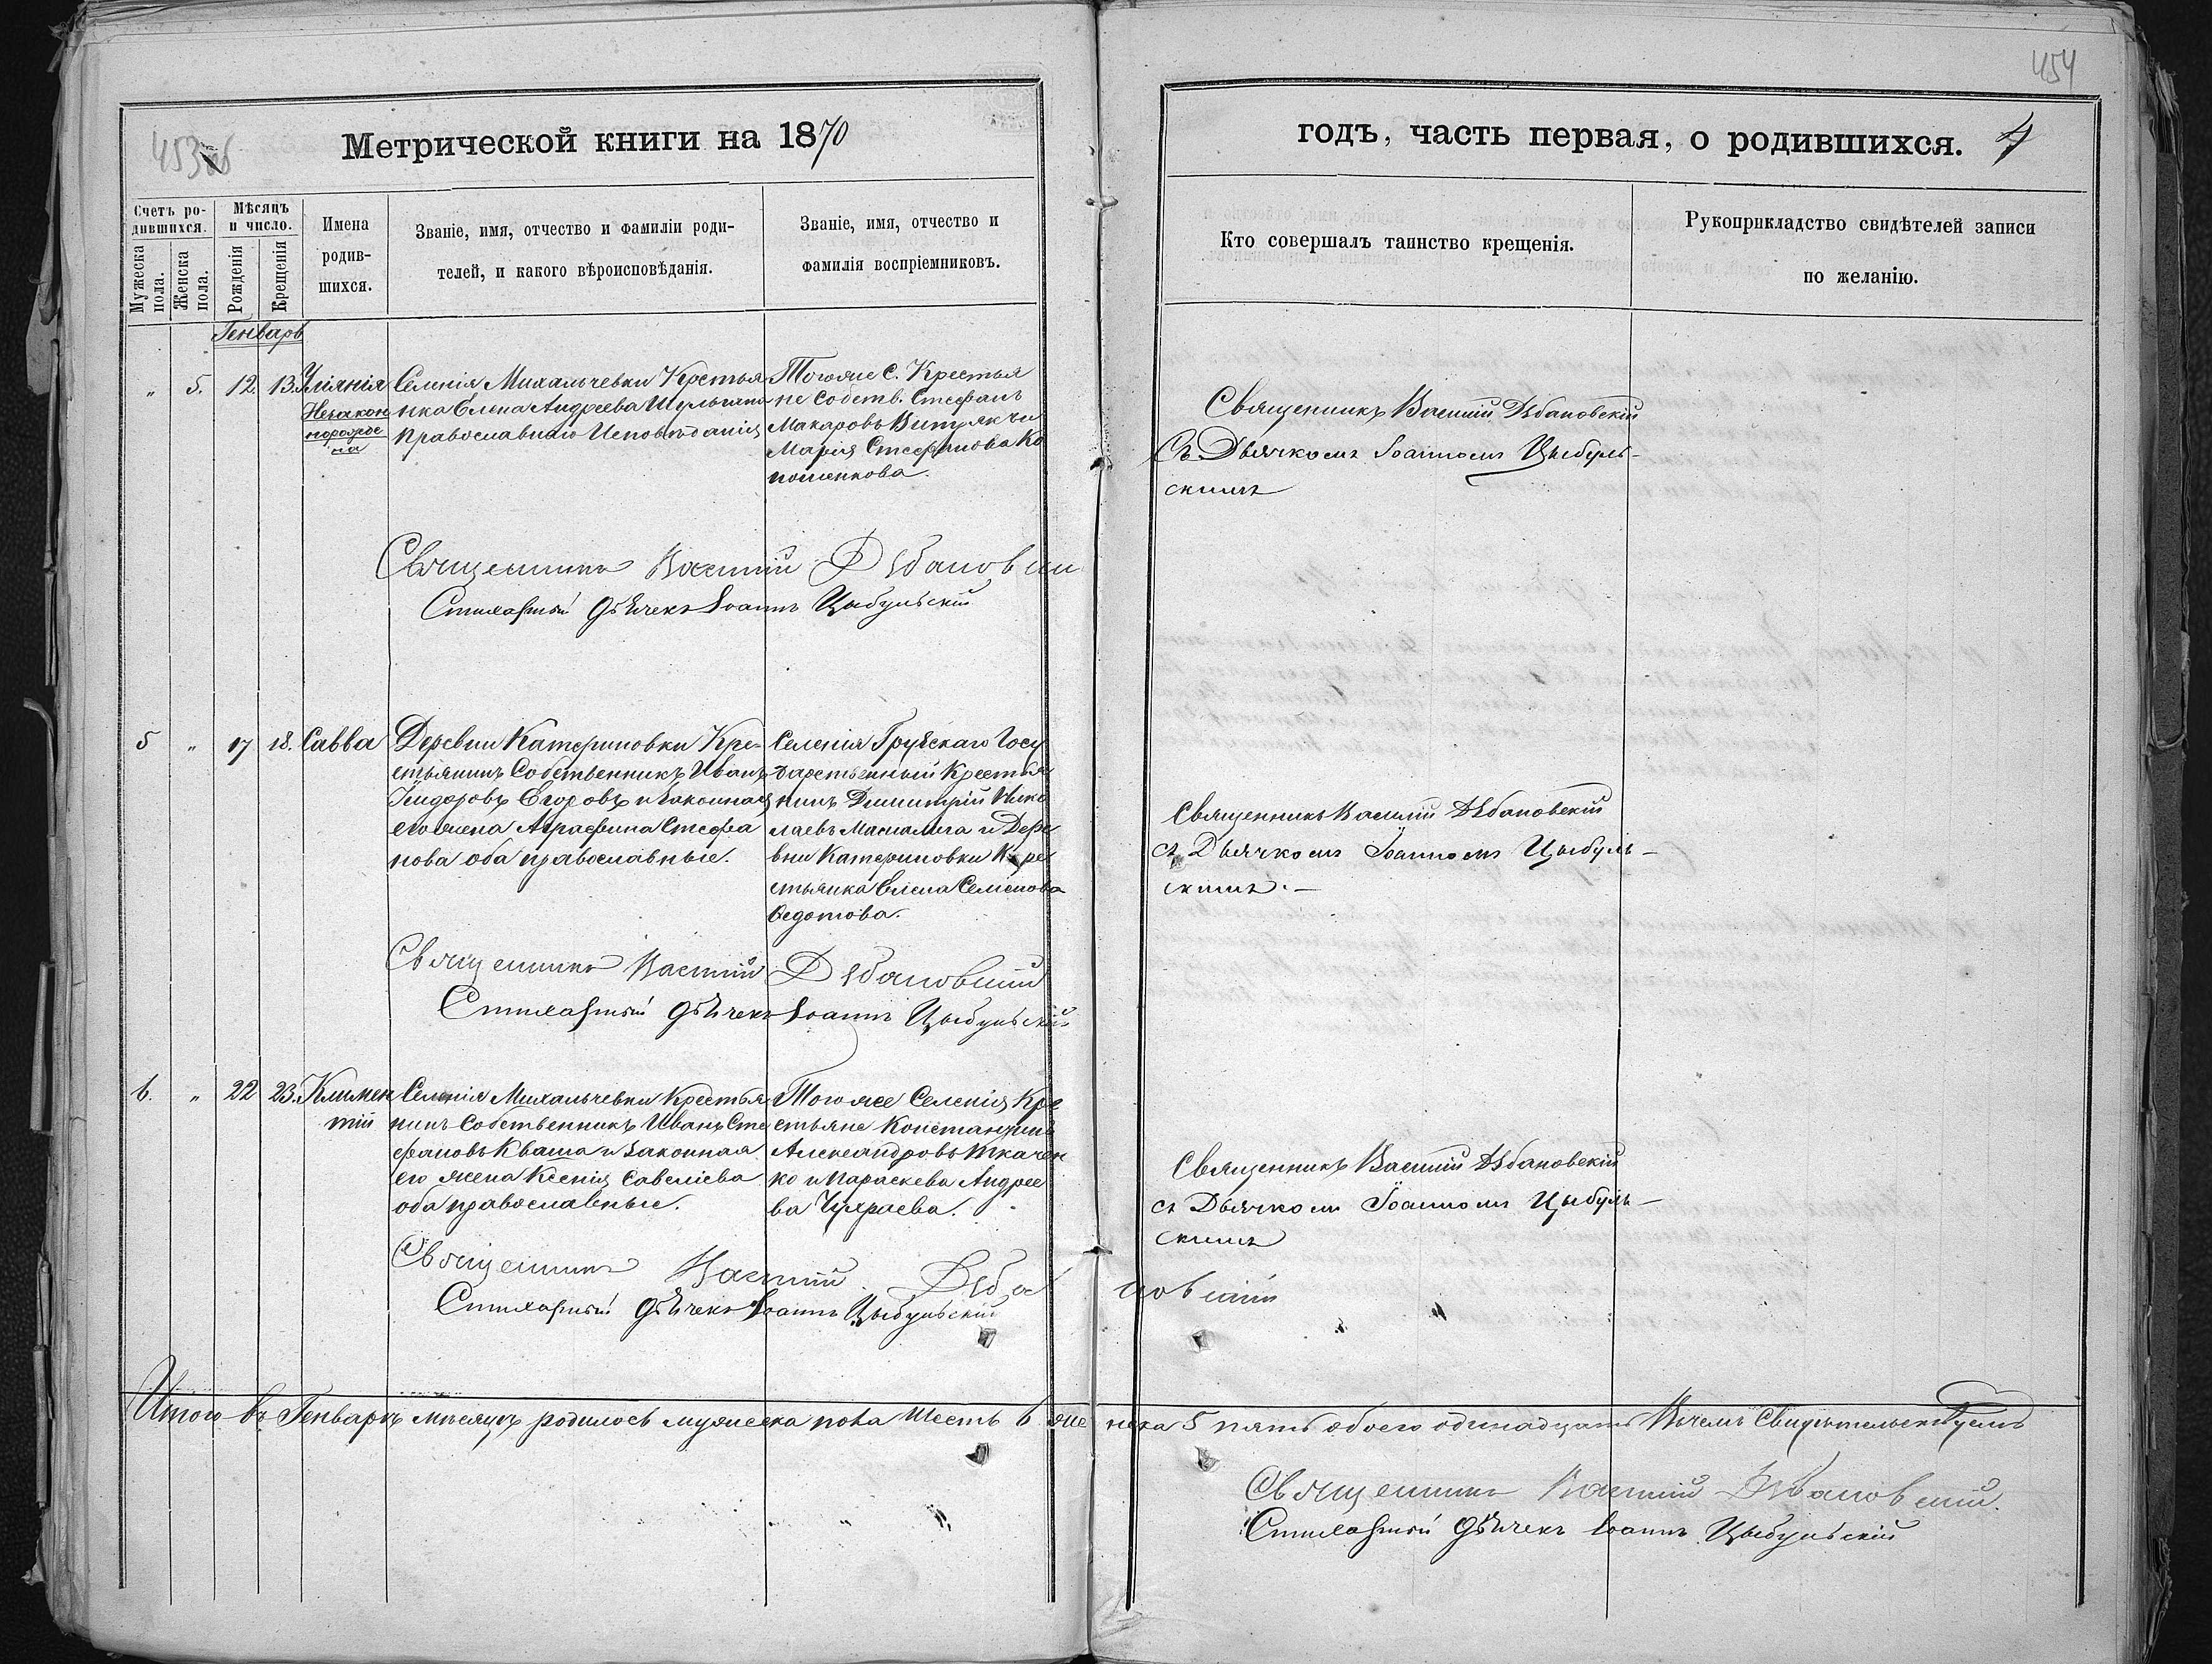 454
453об
Метрической книги на 1870
годъ, часть первая, о родившихся. 4
Счетъ ро-
дившихся.
Мужеска пола.
Женска пола.
Мѣсяцъ
и число.
Рожденія
Крещенія
Имена
родив-
шихся.
Званіе, имя, отчество и фамиліи роди-
телей, и какого вѣроисповѣданія.
Званіе, имя, отчество и
фамилія воспріемниковъ.
Кто совершалъ таинство крещенія.
Рукоприкладство свидѣтелей записи
по желанію.
Генварь
„ 5. 12. 13. Уліянія
Незакон
норожде
на
Селенія Михальчевки Крестья
нка Елена Андреева
православнаго Исповѣданія
Тогоже С. Крестья
не Собств. Стефанъ
Макаровъ
Марія Стефанова Ко
Священникъ Василій Дѣбановскій
Съ Дьячкомъ Іоанномъ Цыбуль-
скимъ
Священникъ Василій Дѣбановскій
Стихарный дьячекъ Іоаннъ Цыбульскій
5 „ 17 18. Савва
Деревни Катериновки Кре-
стьянинъ Собственникъ Иванъ
Егоровъ и законная
его жена Аграфина Стефа
нова оба православные.
Селенія Грузскаго Госу
дарственный Крестья
нинъ Димитрій Нико
лаевъ и Дере
вни Катериновки Кре
стьянка Елена Семенова
Ѳедотова.
Священникъ Василій Дѣбановскій
съ Дьячкомъ Іоанномъ Цыбуль-
скимъ.-
Священникъ Василій Дѣбановскій
Стихарный дьячекъ Іоаннъ Цыбульскій
6. „ 22 23. Климен
тій
Селенія Михальчевки Крестья
нинъ Собственникъ Иванъ Сте
фановъ Кваша и законная
его жена Ксенія Савеліева
оба православные.
Тогоже Селенія Кре
стьяне Константинъ
Александровъ Ткачен
ко и Параскева Андрее
ва
Священникъ Василій Дѣбановскій
съ Дьячкомъ Іоанномъ Цыбуль-
скимъ
Священникъ Василій Дѣбановскій
Стихарный дьячекъ Іоаннъ Цыбульскій
Итого въ Генварѣ мѣсяцѣ родилось мужеска пола Шесть 6 женска 5 пять обоего одинадцать Въчемъ Свидѣтельствуемъ
Священникъ Василій Дѣбановскій.
Стихарный дьячекъ Іоаннъ Цыбульскій